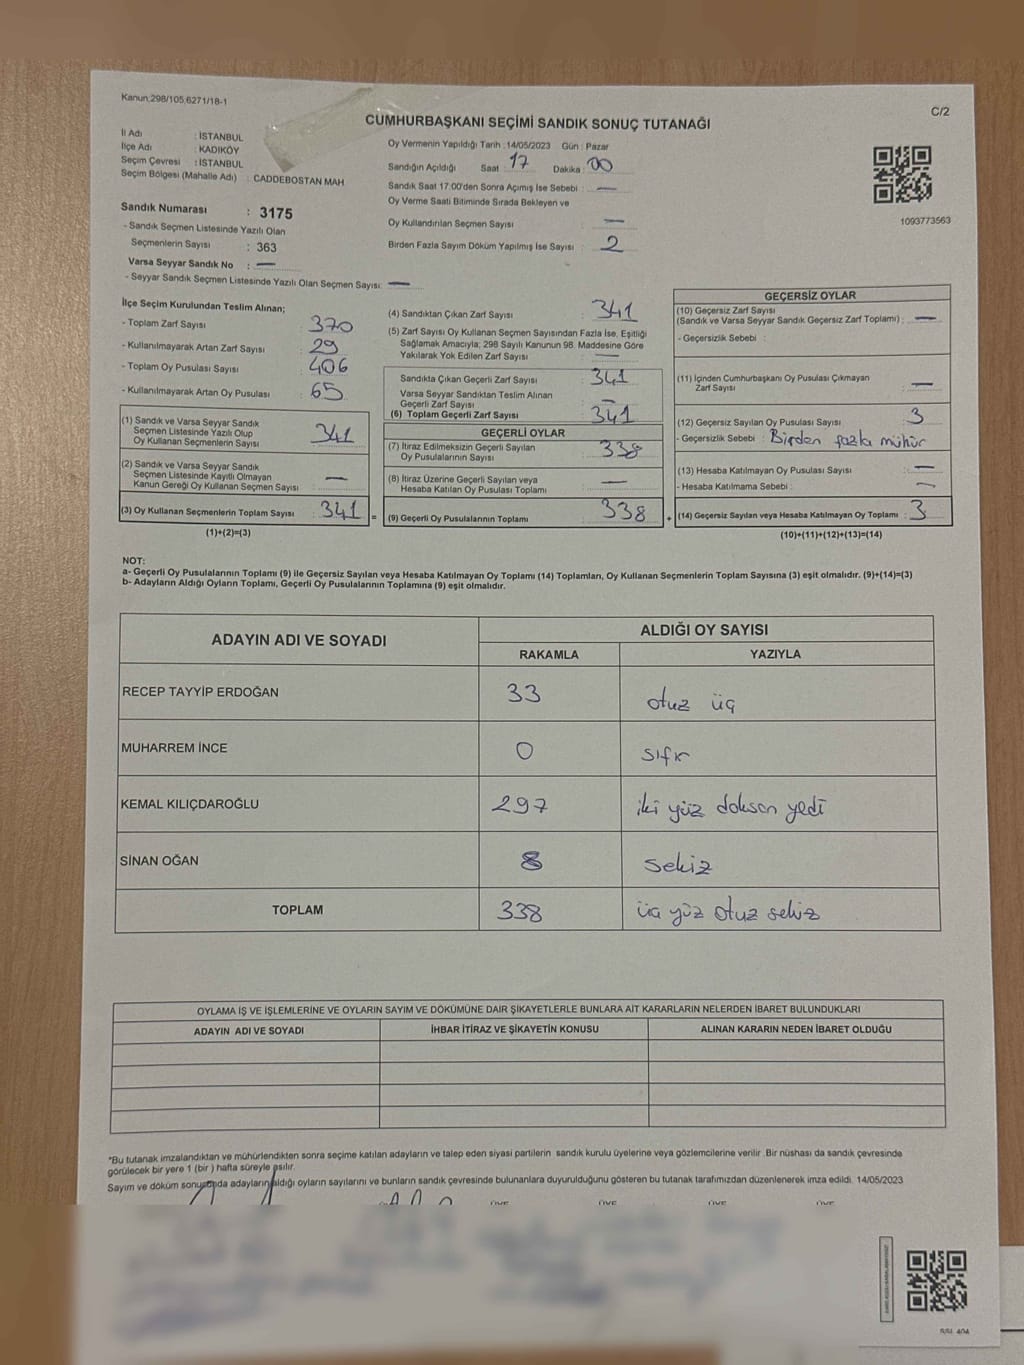 Kanun:298/105,6271/18-1
C/2
CUMHURBAŞKANI SEÇİMİ SANDIK SONUÇ TUTANAĞI
İl Adı : İSTANBUL
İlçe Adı : KADIKÖY
Seçim Çevresi : İSTANBUL
Seçim Bölgesi (Mahalle Adı) : CADDEBOSTAN MAH
Sandık Numarası : 3175
- Sandık Seçmen Listesinde Yazılı Olan
Seçmenlerin Sayısı : 363
Varsa Seyyar Sandık No : —
- Seyyar Sandık Seçmen Listesinde Yazılı Olan Seçmen Sayısı: —
Oy Vermenin Yapıldığı Tarih : 14/05/2023 Gün : Pazar
Sandığın Açıldığı Saat 17 Dakika : 00
Sandık Saat 17:00'den Sonra Açımış İse Sebebi : —
Oy Verme Saati Bitiminde Sırada Bekleyen ve
Oy Kullandırılan Seçmen Sayısı : —
Birden Fazla Sayım Döküm Yapılmış İse Sayısı : 2
1093773563
İlçe Seçim Kurulundan Teslim Alınan;
- Toplam Zarf Sayısı : 370
- Kullanılmayarak Artan Zarf Sayısı : 29
- Toplam Oy Pusulası Sayısı : 406
- Kullanılmayarak Artan Oy Pusulası : 65
(1) Sandık ve Varsa Seyyar Sandık
Seçmen Listesinde Yazılı Olup
Oy Kullanan Seçmenlerin Sayısı : 341
(2) Sandık ve Varsa Seyyar Sandık
Seçmen Listesinde Kayıtlı Olmayan
Kanun Gereği Oy Kullanan Seçmen Sayısı : —
(3) Oy Kullanan Seçmenlerin Toplam Sayısı : 341 =
(1)+(2)=(3)
(4) Sandıktan Çıkan Zarf Sayısı : 341
(5) Zarf Sayısı Oy Kullanan Seçmen Sayısından Fazla İse, Eşitliği
Sağlamak Amacıyla; 298 Sayılı Kanunun 98. Maddesine Göre
Yakılarak Yok Edilen Zarf Sayısı : —
Sandıkta Çıkan Geçerli Zarf Sayısı : 341
Varsa Seyyar Sandıktan Teslim Alınan
Geçerli Zarf Sayısı : —
(6) Toplam Geçerli Zarf Sayısı : 341
GEÇERLİ OYLAR
(7) İtiraz Edilmeksizin Geçerli Sayılan
Oy Pusulalarının Sayısı : 338
(8) İtiraz Üzerine Geçerli Sayılan veya
Hesaba Katılan Oy Pusulası Toplamı : —
(9) Geçerli Oy Pusulalarının Toplamı : 338 +
GEÇERSİZ OYLAR
(10) Geçersiz Zarf Sayısı
(Sandık ve Varsa Seyyar Sandık Geçersiz Zarf Toplamı) : —
- Geçersizlik Sebebi :
(11) İçinden Cumhurbaşkanı Oy Pusulası Çıkmayan
Zarf Sayısı : —
(12) Geçersiz Sayılan Oy Pusulası Sayısı : 3
- Geçersizlik Sebebi : Birden fazla mühür
(13) Hesaba Katılmayan Oy Pusulası Sayısı : —
- Hesaba Katılmama Sebebi : —
(14) Geçersiz Sayılan veya Hesaba Katılmayan Oy Toplamı : 3
(10)+(11)+(12)+(13)=(14)
NOT:
a- Geçerli Oy Pusulalarının Toplamı (9) ile Geçersiz Sayılan veya Hesaba Katılmayan Oy Toplamı (14) Toplamları, Oy Kullanan Seçmenlerin Toplam Sayısına (3) eşit olmalıdır. (9)+(14)=(3)
b- Adayların Aldığı Oyların Toplamı, Geçerli Oy Pusulalarının Toplamına (9) eşit olmalıdır.
ADAYIN ADI VE SOYADI
ALDIĞI OY SAYISI
RAKAMLA YAZIYLA
RECEP TAYYİP ERDOĞAN 33 otuz üç
MUHARREM İNCE 0 sıfır
KEMAL KILIÇDAROĞLU 297 iki yüz doksan yedi
SİNAN OĞAN 8 sekiz
TOPLAM 338 üç yüz otuz sekiz
OYLAMA İŞ VE İŞLEMLERİNE VE OYLARIN SAYIM VE DÖKÜMÜNE DAİR ŞİKAYETLERLE BUNLARA AİT KARARLARIN NELERDEN İBARET BULUNDUKLARI
ADAYIN ADI VE SOYADI İHBAR İTİRAZ VE ŞİKAYETİN KONUSU ALINAN KARARIN NEDEN İBARET OLDUĞU
*Bu tutanak imzalandıktan ve mühürlendikten sonra seçime katılan adayların ve talep eden siyasi partilerin sandık kurulu üyelerine veya gözlemcilerine verilir .Bir nüshası da sandık çevresinde
görülecek bir yere 1 (bir ) hafta süreyle asılır.
Sayım ve döküm sonucunda adayların aldığı oyların sayılarını ve bunların sandık çevresinde bulunanlara duyurulduğunu gösteren bu tutanak tarafımızdan düzenlenerek imza edildi. 14/05/2023
ÜYE ÜYE ÜYE ÜYE